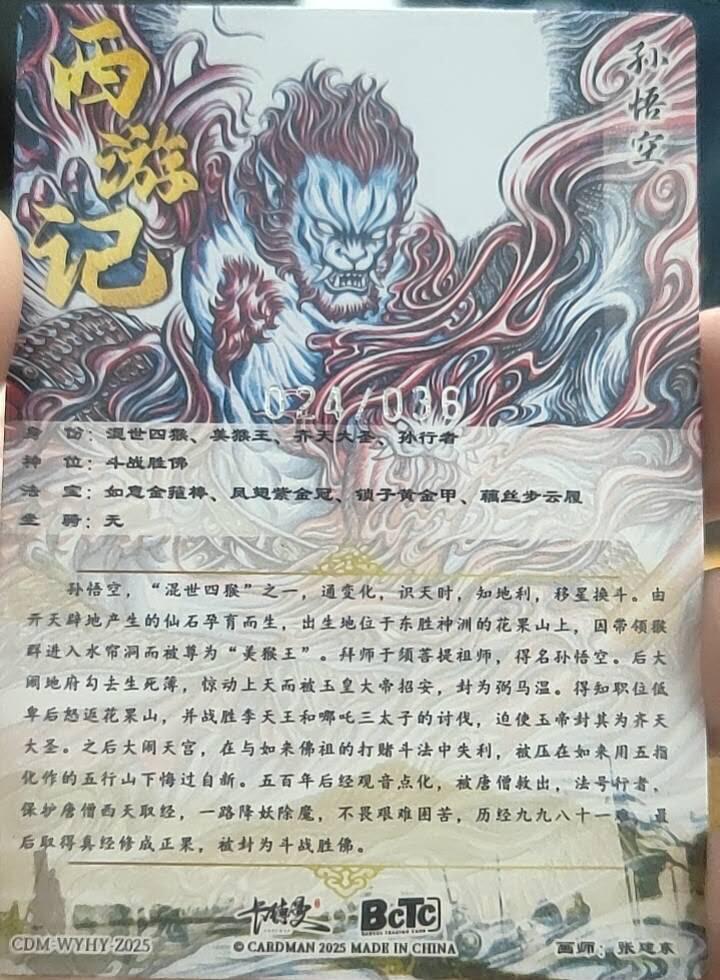 西游记
孙悟空
024/036
身 份：混世四猴、美猴王、齐天大圣、孙行者
神 位：斗战胜佛
法 宝：如意金箍棒、凤翅紫金冠、锁子黄金甲、藕丝步云履
坐 骑：无
孙悟空，“混世四猴”之一，通变化，识天时，知地利，移星换斗。由
开天辟地产生的仙石孕育而生，出生地位于东胜神洲的花果山上，因带领猴
群进入水帘洞而被尊为“美猴王”。拜师于须菩提祖师，得名孙悟空。后大
闹地府勾去生死薄，惊动上天而被玉皇大帝招安，封为弼马温。得知职位低
卑后怒返花果山，并战胜李天王和哪吒三太子的讨伐，迫使玉帝封其为齐天
大圣。之后大闹天宫，在与如来佛祖的打赌斗法中失利，被压在如来用五指
化作的五行山下悔过自新。五百年后经观音点化，被唐僧救出，法号行者，
保护唐僧西天取经，一路降妖除魔，不畏艰难困苦，历经九九八十一难，最
后取得真经修成正果，被封为斗战胜佛。
卡特曼 BCTC
CDM-WYHY-Z025 © CARDMAN 2025 MADE IN CHINA 画师：张建东